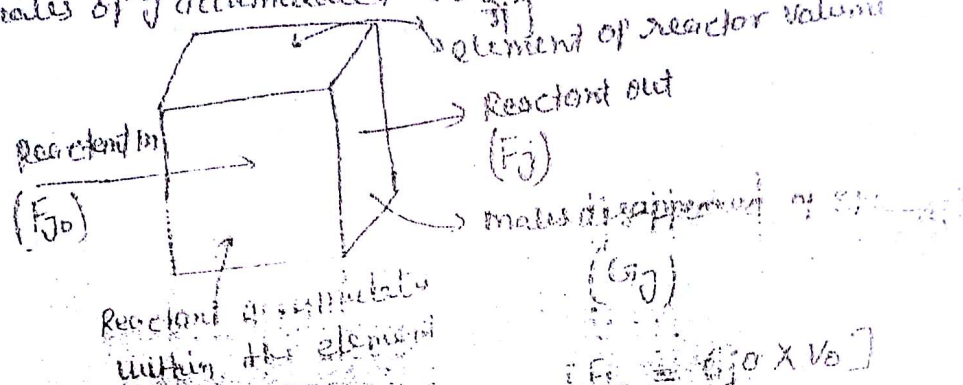 of j
element of reactor volume
Reactant in
(Fjo)
Reactant out
(Fj)
moles disappeared
(Gj)
Reactant accumulate
within the element
= Cjo X Vo]